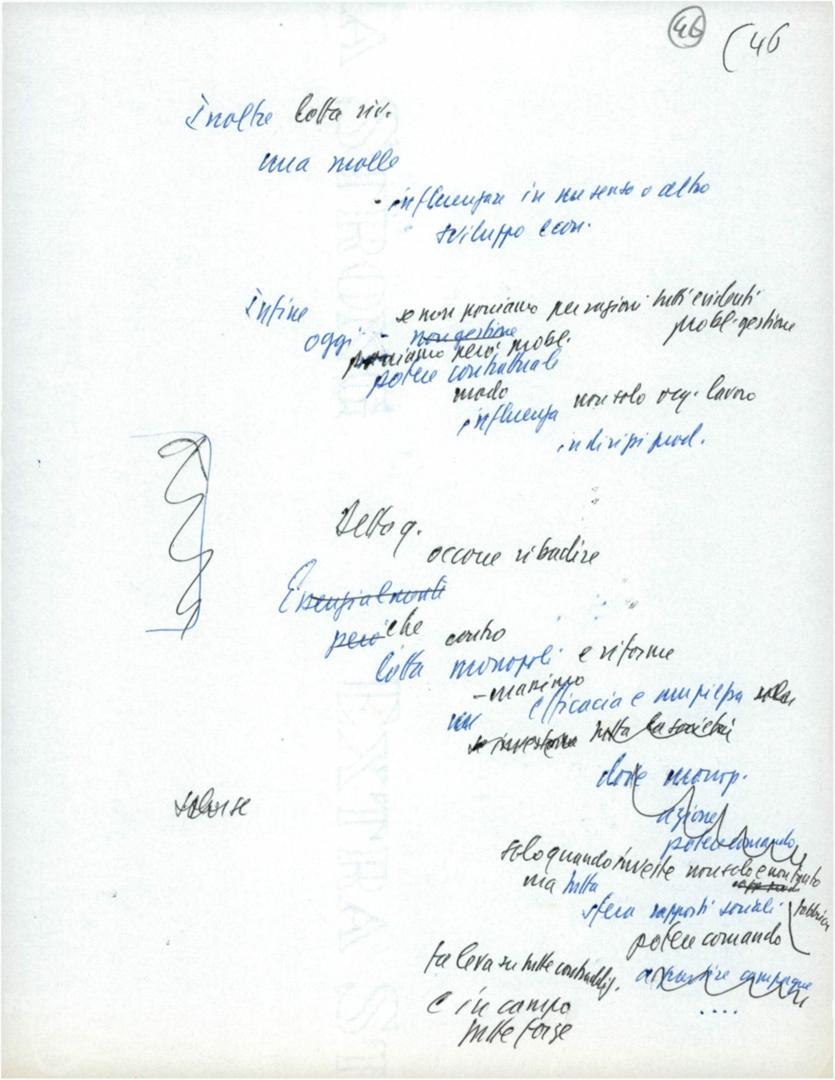 46 (46
Inoltre lotta riv.
una molle
- influenzare in un senso o altro
sviluppo econ.
Infine se non poniamo per ragioni tutti evidenti
probl. gestione
oggi - non gestione
poniamo però probl.
potere contrattuale
modo
influenza non solo org. lavoro
indirizzi prod.
Detto q.
occorre ribadire
Essenzialmente
però che contro
lotta monopoli e riforme
- massimo
efficacia e ampiezza
investono tutta la società
dove monop.
azione
potere comando
solo se
solo quando investe non solo e non tanto
ma tutta
sfera rapporti sociali fabbrica
potere comando
fa leva su tutte contraddiz. a partire campagne
e in campo ....
tutte forze